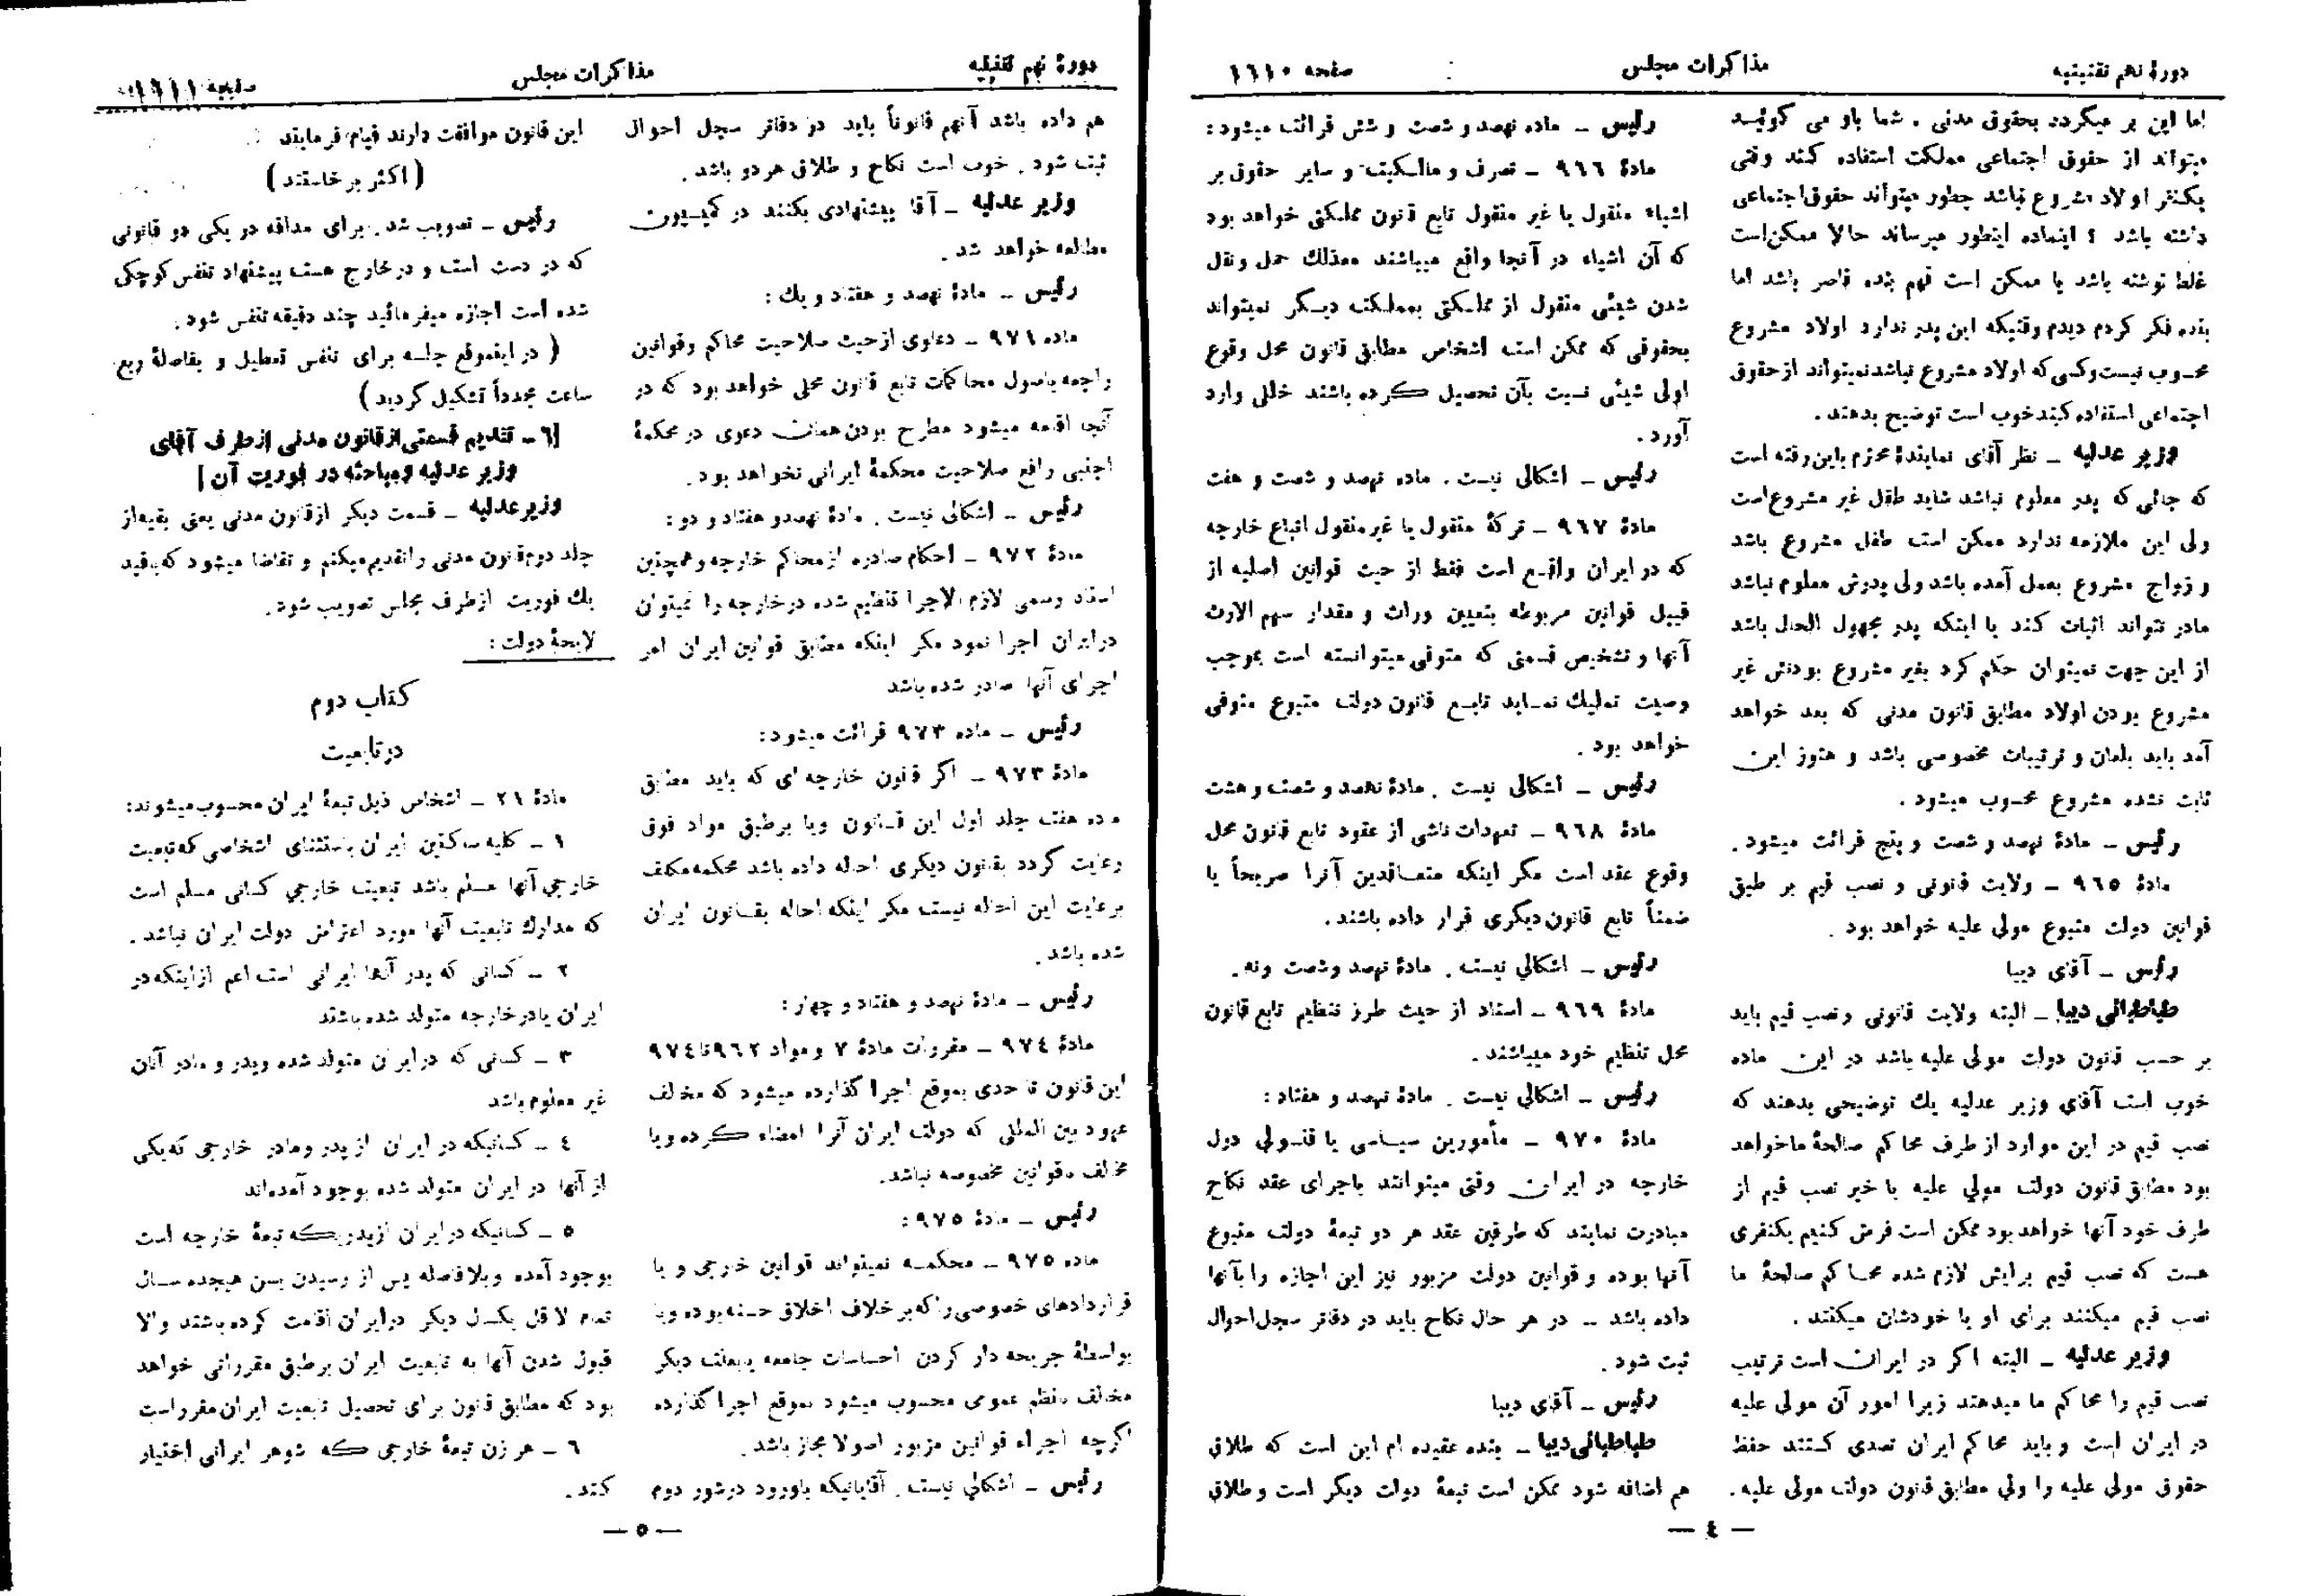 دورهٔ نهم تقنینیه
مذاکرات مجلس
صفحه ۱٦۱۰
اما این بر میگردد بحقوق مدنی . شما باو می گوئید
میتواند از حقوق اجتماعی مملکت استفاده کند وقتی
یکنفر اولاد مشروع نباشد چطور میتواند حقوق اجتماعی
داشته باشد ؟ اینماده اینطور میرساند حالا ممکن است
غلط نوشته باشد یا ممکن است فهم بنده قاصر باشد اما
بنده فکر کردم دیدم وقتیکه این پدر ندارد اولاد مشروع
محسوب نیست و کسی که اولاد مشروع نباشد نمیتواند از حقوق
اجتماعی استفاده کند خوب است توضیح بدهند .
وزیر عدلیه ــ نظر آقای نمایندهٔ محترم باین رفته است
که جائی که پدر معلوم نباشد شاید طفل غیر مشروع است
ولی این ملازمه ندارد ممکن است طفل مشروع باشد
و زواج مشروع بعمل آمده باشد ولی پدرش معلوم نباشد
مادر نتواند اثبات کند یا اینکه پدر مجهول الحال باشد
از این جهت نمیتوان حکم کرد بغیر مشروع بودنش غیر
مشروع بودن اولاد مطابق قانون مدنی که بعد خواهد
آمد باید بلعان و ترتیبات مخصوصی باشد و هنوز این
ثابت نشده مشروع محسوب میشود .
رئیس ــ مادهٔ نهصد و شصت و پنج قرائت میشود .
مادهٔ ۹٦٥ ــ ولایت قانونی و نصب قیم بر طبق
قوانین دولت متبوع مولی علیه خواهد بود .
رئیس ــ آقای دیبا
طباطبائی دیبا ــ البته ولایت قانونی و نصب قیم باید
بر حسب قانون دولت مولی علیه باشد در این ماده
خوب است آقای وزیر عدلیه یك توضیحی بدهند که
نصب قیم در این موارد از طرف محاکم صالحهٔ ما خواهد
بود مطابق قانون دولت مولی علیه یا خیر نصب قیم از
طرف خود آنها خواهد بود ممکن است فرض کنیم یکنفری
هست که نصب قیم برایش لازم شده محاکم صالحهٔ ما
نصب قیم میکنند برای او یا خودشان میکنند .
وزیر عدلیه ــ البته اگر در ایران است ترتیب
نصب قیم را محاکم ما میدهند زیرا امور آن مولی علیه
در ایران است و باید محاکم ایران تصدی کنند حفظ
حقوق مولی علیه را ولی مطابق قانون دولت مولی علیه .
رئیس ــ ماده نهصد و شصت و شش قرائت میشود :
مادهٔ ۹٦٦ ــ تصرف و مالکیت و سایر حقوق بر
اشیاء منقول یا غیر منقول تابع قانون مملکتی خواهد بود
که آن اشیاء در آنجا واقع میباشند معذلك حمل و نقل
شدن شیئی منقول از مملکتی بمملکت دیگر نمیتواند
بحقوقی که ممکن است اشخاص مطابق قانون محل وقوع
اولی شیئی نسبت بآن تحصیل کرده باشند خللی وارد
آورد .
رئیس ــ اشکالی نیست . ماده نهصد و شصت و هفت
مادهٔ ۹٦۷ ــ ترکهٔ منقول یا غیر منقول اتباع خارجه
که در ایران واقع است فقط از حیث قوانین اصلیه از
قبیل قوانین مربوطه بتعیین وراث و مقدار سهم الارث
آنها و تشخیص قسمتی که متوفی میتوانسته است بموجب
وصیت تملیك نماید تابع قانون دولت متبوع متوفی
خواهد بود .
رئیس ــ اشکالی نیست . مادهٔ نهصد و شصت و هشت
مادهٔ ۹٦۸ ــ تعهدات ناشی از عقود تابع قانون محل
وقوع عقد است مگر اینکه متعاقدین آنرا صریحاً یا
ضمناً تابع قانون دیگری قرار داده باشند .
رئیس ــ اشکالی نیست . مادهٔ نهصد و شصت و نه .
مادهٔ ۹٦۹ ــ اسناد از حیث طرز تنظیم تابع قانون
محل تنظیم خود میباشند .
رئیس ــ اشکالی نیست . مادهٔ نهصد و هفتاد :
مادهٔ ۹۷۰ ــ مأمورین سیاسی یا قنسولی دول
خارجه در ایران وقتی میتوانند باجرای عقد نکاح
مبادرت نمایند که طرفین عقد هر دو تبعهٔ دولت متبوع
آنها بوده و قوانین دولت مزبور نیز این اجازه را بآنها
داده باشد ــ در هر حال نکاح باید در دفاتر سجل احوال
ثبت شود .
رئیس ــ آقای دیبا
طباطبائی دیبا ــ بنده عقیده ام این است که طلاق
هم اضافه شود ممکن است تبعهٔ دولت دیگر است و طلاق
ــ ٤ ــ
دورهٔ نهم تقنینیه
مذاکرات مجلس
صفحه ۱٦۱۱
هم داده باشد آنهم قانوناً باید در دفاتر سجل احوال
ثبت شود . خوب است نکاح و طلاق هر دو باشد .
وزیر عدلیه ــ آقا پیشنهادی بکنند در کمیسیون
مطالعه خواهد شد .
رئیس ــ مادهٔ نهصد و هفتاد و یك :
ماده ۹۷۱ ــ دعاوی از حیث صلاحیت محاکم و قوانین
راجعه باصول محاکمات تابع قانون محلی خواهد بود که در
آنجا اقامه میشود مطرح بودن همان دعوی در محکمهٔ
اجنبی رافع صلاحیت محکمهٔ ایرانی نخواهد بود .
رئیس ــ اشکالی نیست . مادهٔ نهصد و هفتاد و دو :
مادهٔ ۹۷۲ ــ احکام صادره از محاکم خارجه و همچنین
اسناد رسمی لازم الاجرا تنظیم شده در خارجه را نمیتوان
در ایران اجرا نمود مگر اینکه مطابق قوانین ایران امر
اجرای آنها صادر شده باشد
رئیس ــ ماده ۹۷۳ قرائت میشود :
مادهٔ ۹۷۳ ــ اگر قانون خارجه ای که باید مطابق
ماده هفت جلد اول این قانون و یا برطبق مواد فوق
رعایت گردد بقانون دیگری احاله داده باشد محکمه مکلف
برعایت این احاله نیست مگر اینکه احاله بقانون ایران
شده باشد .
رئیس ــ مادهٔ نهصد و هفتاد و چهار :
مادهٔ ۹۷٤ ــ مقررات مادهٔ ۷ و مواد ۹٦۲ تا ۹۷٤
این قانون تا حدی بموقع اجرا گذارده میشود که مخالف
عهود بین المللی که دولت ایران آنرا امضاء کرده و یا
مخالف با قوانین مخصوصه نباشد .
رئیس ــ مادهٔ ۹۷٥ :
ماده ۹۷٥ ــ محکمه نمیتواند قوانین خارجی و یا
قراردادهای خصوصی را که بر خلاف اخلاق حسنه بوده و یا
بواسطهٔ جریحه دار کردن احساسات جامعه یا بعلت دیگر
مخالف با نظم عمومی محسوب میشود بموقع اجرا گذارده
اگرچه اجراء قوانین مزبور اصولا مجاز باشد .
رئیس ــ اشکالی نیست . آقایانیکه باورود در شور دوم
این قانون موافقت دارند قیام فرمایند
( اکثر برخاستند )
رئیس ــ تصویب شد . برای مداقه در یکی دو قانونی
که در دست است و در خارج هست پیشنهاد تنفس کوچکی
شده است اجازه میفرمائید چند دقیقه تنفس شود .
( در اینموقع جلسه برای تنفس تعطیل و بفاصلهٔ ربع
ساعت مجدداً تشکیل گردید )
[٦ ــ تقدیم قسمتی از قانون مدنی از طرف آقای
وزیر عدلیه و مباحثه در فوریت آن ]
وزیر عدلیه ــ قسمت دیگر از قانون مدنی یعنی بقیه از
جلد دوم قانون مدنی را تقدیم میکنم و تقاضا میشود که بقید
یك فوریت از طرف مجلس تصویب شود .
لایحهٔ دولت :
کتاب دوم
در تابعیت
مادهٔ ۲۱ ــ اشخاص ذیل تبعهٔ ایران محسوب میشوند :
۱ ــ کلیه ساکنین ایران باستثنای اشخاصی که تبعیت
خارجی آنها مسلم باشد تبعیت خارجی کسانی مسلم است
که مدارك تابعیت آنها مورد اعتراض دولت ایران نباشد .
۲ ــ کسانی که پدر آنها ایرانی است اعم از اینکه در
ایران یا در خارجه متولد شده باشند
۳ ــ کسانی که در ایران متولد شده و پدر و مادر آنان
غیر معلوم باشد
٤ ــ کسانیکه در ایران از پدر و مادر خارجی که یکی
از آنها در ایران متولد شده بوجود آمده‌اند
٥ ــ کسانیکه در ایران از پدریکه تبعهٔ خارجه است
بوجود آمده و بلافاصله پس از رسیدن بسن هیجده سال
تمام لااقل یکسال دیگر در ایران اقامت کرده باشند و الا
قبول شدن آنها به تابعیت ایران برطبق مقرراتی خواهد
بود که مطابق قانون برای تحصیل تابعیت ایران مقرر است
٦ ــ هر زن تبعهٔ خارجی که شوهر ایرانی اختیار
کند .
ــ ٥ ــ